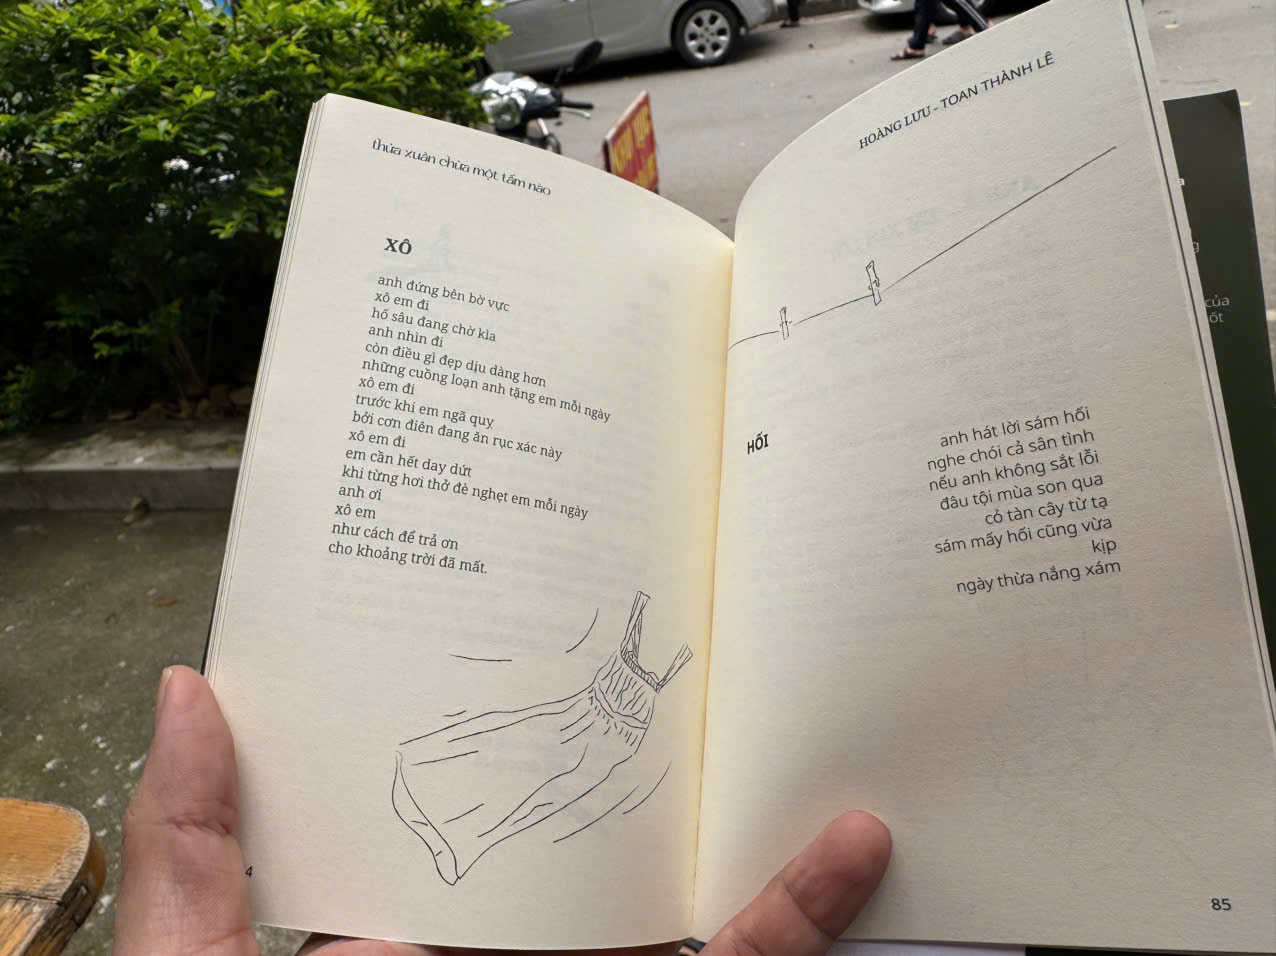 thừa xuân chừa một tấm nào
XÔ
anh đứng bên bờ vực
xô em đi
hố sâu đang chờ kìa
anh nhìn đi
còn điều gì đẹp dịu dàng hơn
những cuồng loạn anh tặng em mỗi ngày
xô em đi
trước khi em ngã quỵ
bởi cơn điên đang ăn rục xác này
xô em đi
em cần hết day dứt
khi từng hơi thở đè nghẹt em mỗi ngày
anh ơi
xô em
như cách để trả ơn
cho khoảng trời đã mất.
4
HOÀNG LƯU - TOAN THÀNH LÊ
HỐI
anh hát lời sám hối
nghe chói cả sân tình
nếu anh không sắt lỗi
đâu tội mùa son qua
cỏ tàn cây từ tạ
sám mấy hối cũng vừa
kịp
ngày thừa nắng xám
85
của
ốt